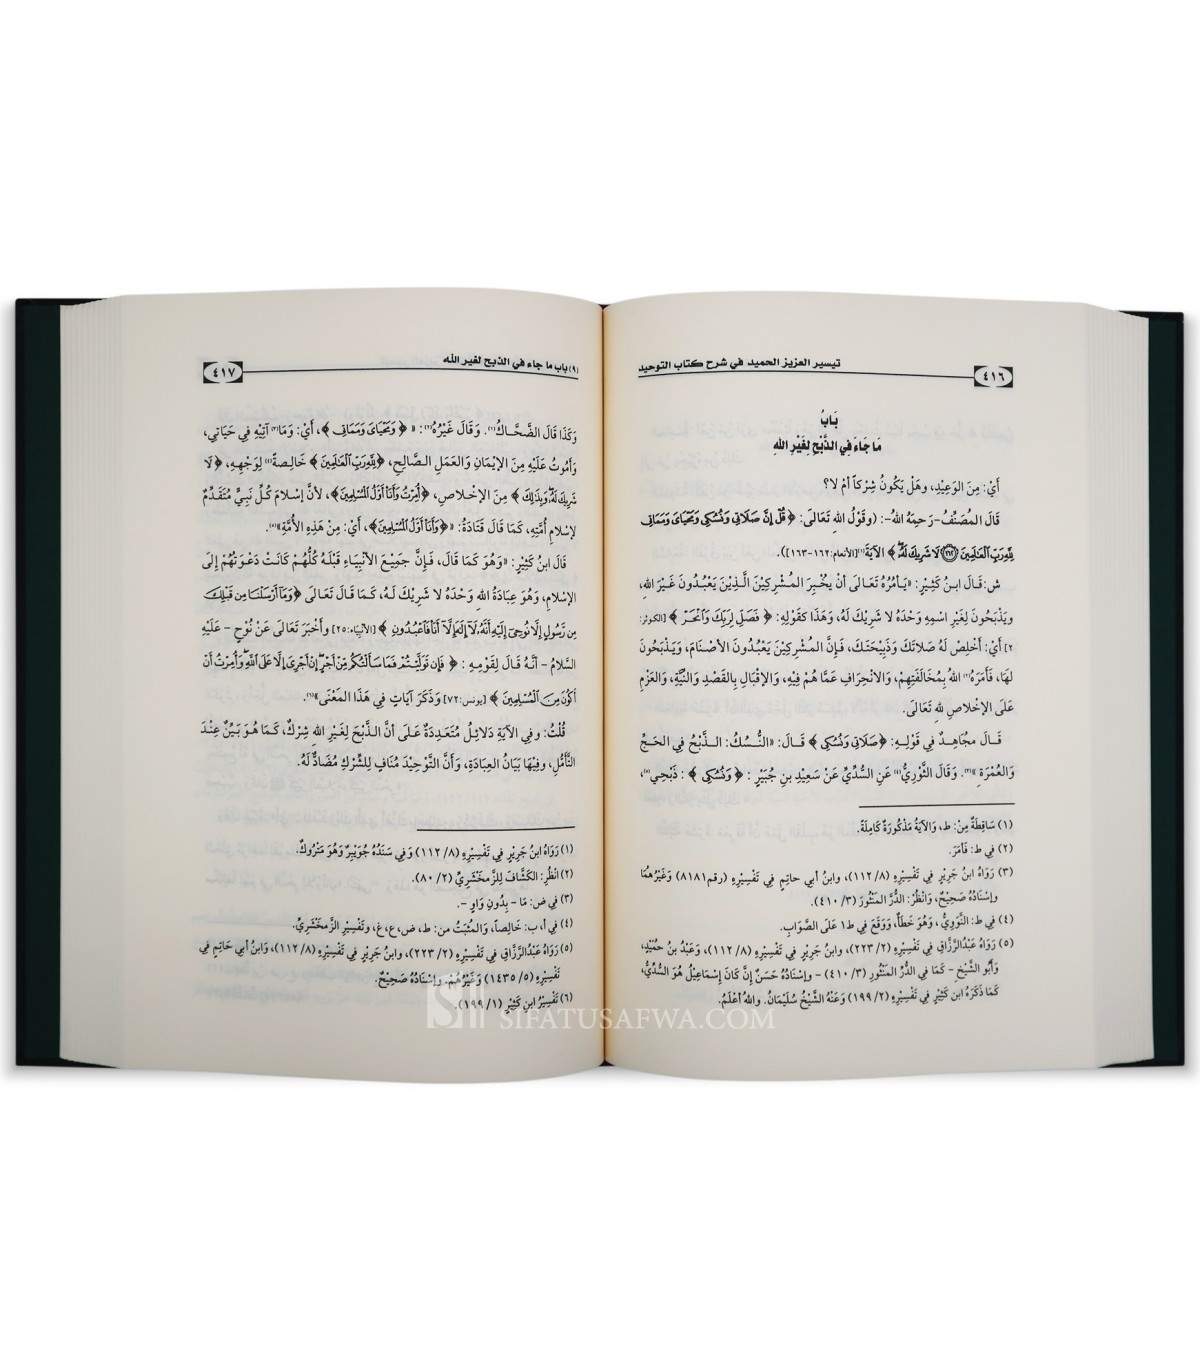 ٤١٦
تيسير العزيز الحميد في شرح كتاب التوحيد
بَابُ
مَا جَاءَ فِي الذَّبْحِ لِغَيْرِ اللهِ
أَيْ: مِنَ الوَعِيْدِ، وهَلْ يَكُونُ شِرْكاً أمْ لا؟
قَالَ المُصَنِّفُ-رَحِمَهُ اللهُ-: (وقَوْلُ اللهِ تَعَالَى: ﴿قُلْ إِنَّ صَلَاتِي وَنُسُكِي وَمَحْيَايَ وَمَمَاتِي
لِلَّهِ رَبِّ الْعَالَمِينَ ﴿١٦٢﴾ لَا شَرِيكَ لَهُ﴾ الآيَةَ(١)[الأنعام:١٦٢-١٦٣]).
ش: قَالَ ابنُ كَثِيْرٍ: «يَأمُرُهُ تَعَالَى أنْ يُخْبِرَ المُشْرِكِيْنَ الَّذِيْنَ يَعْبُدُونَ غَيْرَ اللهِ،
ويَذْبَحُونَ لِغَيْرِ اسْمِهِ وَحْدَهُ لا شَرِيْكَ لَهُ، وَهَذَا كقَوْلِهِ: ﴿فَصَلِّ لِرَبِّكَ وَانْحَرْ﴾ [الكوثر:
٢] أيْ: أخْلِصْ لَهُ صَلاتَكَ وَذَبِيْحَتَكَ، فَإنَّ المُشْرِكِيْنَ يَعْبُدُونَ الأصْنَامَ، وَيَذْبَحُونَ
لهَا، فَأمَرَهُ(٢) اللهُ بِمُخَالَفَتِهِمْ، وَالانْحِرَافِ عَمَّا هُمْ فِيْهِ، وَالإقْبَالِ بِالقَصْدِ وَالنِّيَّةِ، وَالعَزْمِ
عَلَى الإخْلاصِ للهِ تَعَالَى.
قَالَ مُجَاهِدٌ فِي قَوْلِهِ: ﴿صَلَاتِي وَنُسُكِي﴾ قَالَ: «النُّسُكُ: الذَّبْحُ فِي الحَجِّ
وَالعُمْرَةِ»(٣). وَقَالَ الثَّوْرِيُّ(٤) عَنِ السُّدِّيِّ عَنْ سَعِيْدِ بنِ جُبَيْرٍ: ﴿وَنُسُكِي﴾: ذَبْحِي(٥)،
(١) سَاقِطَةٌ مِنْ: ط، وَالآيَةُ مَذْكُورَةٌ كَامِلَةً.
(٢) فِي ط: فَأمَرَ.
(٣) رَوَاهُ ابنُ جَرِيْرٍ فِي تَفْسِيْرِهِ (١١٢/٨)، وابنُ أبي حاتِمٍ فِي تَفْسِيْرِهِ (رقم٨١٨١) وَغَيْرُهُمَا
وإسْنَادُهُ صَحِيْحٌ، وَانْظُرْ: الدُّرَّ المَنْثُورَ (٤١٠/٣).
(٤) فِي ط: النَّوَوِيُّ، وَهُوَ خَطَأٌ، وَوَقَعَ فِي ط١ عَلَى الصَّوَابِ.
(٥) رَوَاهُ عَبْدُالرَّزَّاقِ فِي تَفْسِيْرِهِ (٢٢٣/٢)، وابنُ جَرِيْرٍ فِي تَفْسِيْرِهِ (١١٢/٨)، وَعَبْدُ بنُ حُمَيْدٍ،
وَأَبُو الشَّيْخِ - كَمَا فِي الدُّرِّ المَنْثُورِ (٤١٠/٣) - وإسْنَادُهُ حَسَنٌ إنْ كَانَ إسْمَاعِيْلُ هُوَ السُّدِّيُّ،
كَمَا ذَكَرَهُ ابنِ كَثِيْرٍ فِي تَفْسِيْرِهِ (١٩٩/٢) وَعَنْهُ الشَّيْخُ سُلَيْمَانُ. واللهُ أعْلَمُ.
٤١٧
(٩) باب ما جاء في الذبح لغير الله
وَكَذَا قَالَ الضَّحَّاكُ(١). وَقَالَ غَيْرُهُ(٢): «﴿وَمَحْيَايَ وَمَمَاتِي﴾، أيْ: وَمَا(٣) آتِيْهِ فِي حَيَاتِي،
وَأمُوتُ عَلَيْهِ مِنَ الإيْمَانِ وَالعَمَلِ الصَّالِحِ، ﴿لِلَّهِ رَبِّ الْعَالَمِينَ﴾ خَالِصةً(٤) لِوَجْهِهِ، ﴿لَا
شَرِيكَ لَهُ وَبِذَلِكَ﴾ مِنَ الإخْلاصِ، ﴿أُمِرْتُ وَأَنَا أَوَّلُ الْمُسْلِمِينَ﴾، لأنَّ إسْلامَ كُلِّ نَبِيٍّ مُتَقَدِّمٌ
لإسْلامِ أُمَّتِهِ، كَمَا قَالَ قَتَادَةُ: «﴿وَأَنَا أَوَّلُ الْمُسْلِمِينَ﴾، أيْ: مِنْ هَذِهِ الأُمَّةِ»(٥).
قَالَ ابنُ كَثِيْرٍ: «وَهُوَ كَمَا قَالَ، فَإنَّ جَمِيْعَ الأنْبِيَاءِ قَبْلَهُ كُلُّهُمْ كَانَتْ دَعْوَتُهُمْ إلَى
الإسْلامِ، وَهُوَ عِبَادَةُ اللهِ وَحْدَهُ لا شَرِيْكَ لَهُ، كَمَا قَالَ تَعَالَى ﴿وَمَا أَرْسَلْنَا مِن قَبْلِكَ
مِن رَّسُولٍ إِلَّا نُوحِي إِلَيْهِ أَنَّهُ لَا إِلَهَ إِلَّا أَنَا فَاعْبُدُونِ﴾ [الأنبياء:٢٥] وأخْبَرَ تَعَالَى عَنْ نُوْحٍ - عَلَيْهِ
السَّلامُ - أنَّهُ قَالَ لِقَوْمِهِ: ﴿فَإِن تَوَلَّيْتُمْ فَمَا سَأَلْتُكُم مِّنْ أَجْرٍ إِنْ أَجْرِيَ إِلَّا عَلَى اللَّهِ وَأُمِرْتُ أَنْ
أَكُونَ مِنَ الْمُسْلِمِينَ﴾ [يونس:٧٢] وَذَكَرَ آيَاتٍ فِي هَذَا المَعْنَى»(٦).
قُلْتُ: وفِي الآيَةِ دَلائِلُ مُتَعَدِدَةٌ عَلَى أنَّ الذَّبْحَ لِغَيْرِ اللهِ شِرْكٌ، كَمَا هُوَ بَيِّنٌ عِنْدَ
التَّأمُّلِ، وفِيْهَا بَيَانُ العِبَادَةِ، وَأنَّ التَّوْحِيْدَ مُنَافٍ لِلشِّرْكِ مُضَادٌّ لَهُ.
(١) رَوَاهُ ابنُ جَرِيْرٍ فِي تَفْسِيْرِهِ (١١٢/٨) وَفِي سَنَدُهُ جُوَيْبِرٌ وَهُوَ مَتْرُوكٌ.
(٢) انْظُرْ: الكَشَّافَ لِلزَّمَخْشَرِيِّ (٨٠/٢).
(٣) فِي ض: مَا - بِدُونِ وَاوٍ -.
(٤) فِي أ، ب: خَالِصاً، وَالمُثْبَتُ من: ط، ض، ع، غ، وتَفْسِيْرِ الزَّمَخْشَرِيِّ.
(٥) رَوَاهُ عَبْدُالرَّزَّاقِ فِي تَفْسِيْرِهِ (٢٢٣/٢)، وابنُ جَرِيْرٍ فِي تَفْسِيْرِهِ (١١٢/٨)، وَابنُ أبي حَاتِمٍ فِي
تَفْسِيْرِهِ (١٤٣٥/٥) وَغَيْرُهُمْ. وإسْنَادُهُ صَحِيْحٌ.
(٦) تَفْسِيْرُ ابنِ كَثِيْرٍ (١٩٩/١).
SIFATUSAFWA.COM